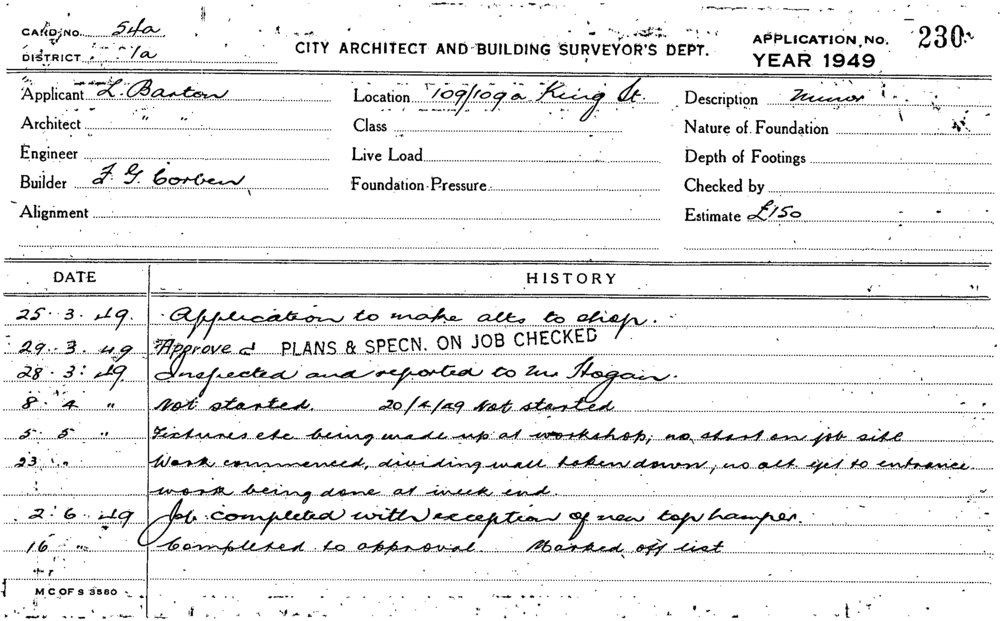 CARD NO. 54a
DISTRICT 1a
CITY ARCHITECT AND BUILDING SURVEYOR'S DEPT.
APPLICATION, NO. 230
YEAR 1949
Applicant L. Barton
Location 109/109a King St.
Description Minor
Architect " "
Class
Nature of Foundation
Engineer
Live Load
Depth of Footings
Builder F. G. Corben
Foundation Pressure
Checked by
Alignment
Estimate £150
DATE HISTORY
25 . 3 . 49. Application to make alts to shop.
29 . 3 . 49 Approved PLANS & SPECN. ON JOB CHECKED
28 . 3 . 49. Inspected and reported to Mr Hogan.
8 . 4 " Not started. 20/4/49 Not started
5 . 5 " Fixtures etc being made up at workshop, no start on job site
23 " " Work commenced, dividing wall taken down, no alt yet to entrance
work being done at week end.
2 . 6 . 49 Job completed with exception of new top hamper.
16 " Completed to approval. Marked off list
M C OF S 3580